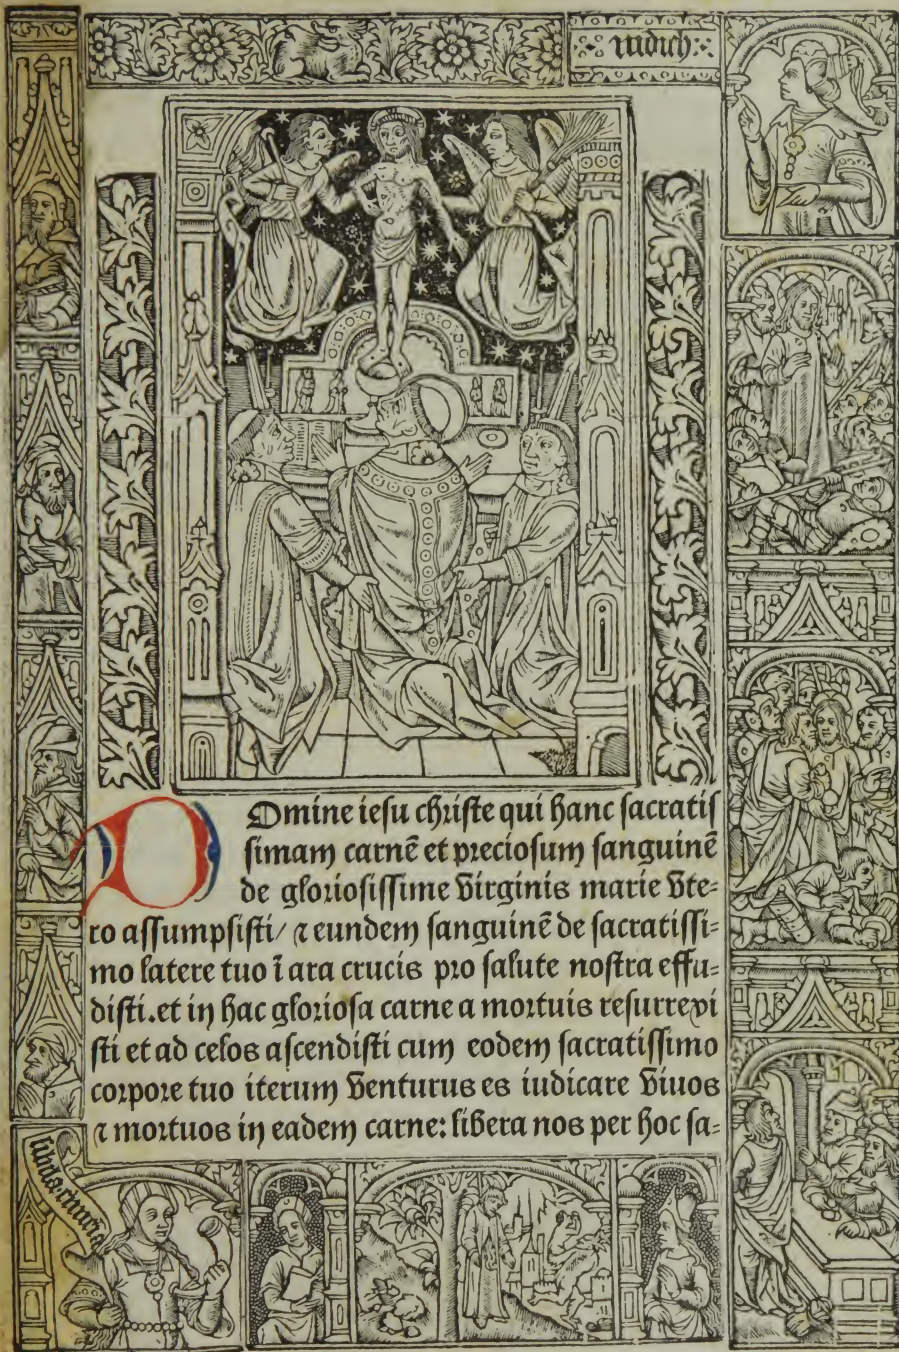 Iudich
Domine iesu christe qui hanc sacratis
simam carnē et preciosum sanguinē
de gloriosissime virginis marie vte-
ro assumpsisti/ ⁊ eundem sanguinē de sacratissi-
mo latere tuo ī ara crucis pro salute nostra effu-
disti. et in hac gloriosa carne a mortuis resurrexi
sti et ad celos ascendisti cum eodem sacratissimo
corpore tuo iterum venturus es iudicare viuos
⁊ mortuos in eadem carne: libera nos per hoc sa-